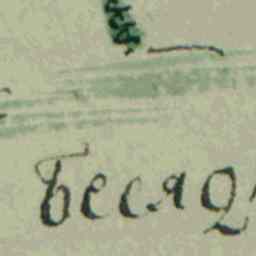 Бесяд